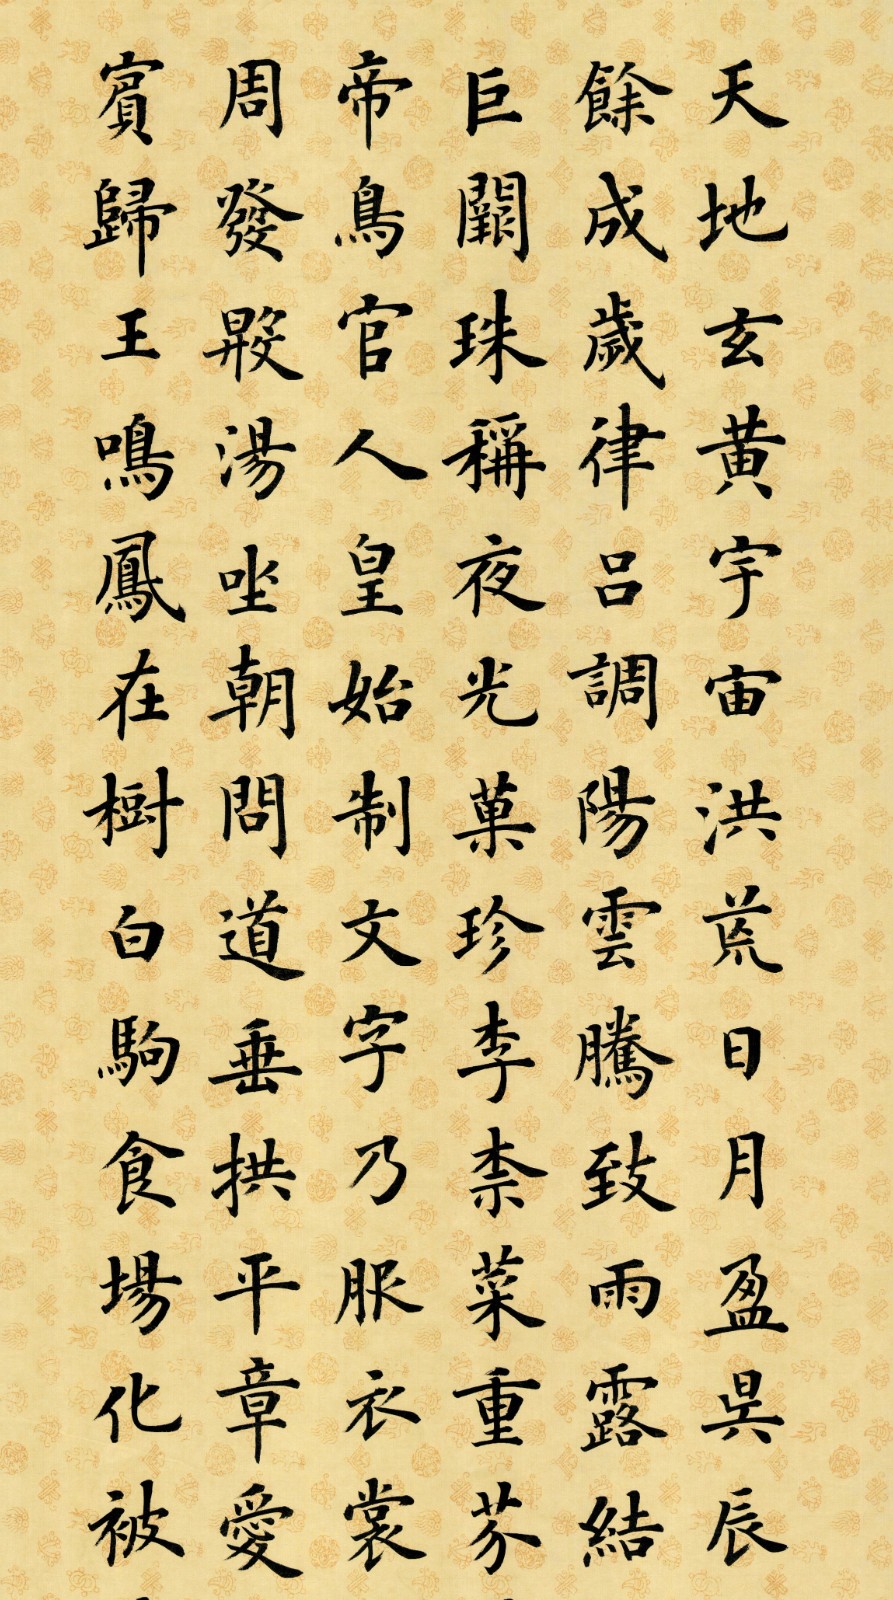 天地玄黄宇宙洪荒日月盈昃辰
餘成歲律吕調陽雲騰致雨露結
巨闕珠稱夜光菓珍李柰菜重芥
帝鳥官人皇始制文字乃服衣裳
周發殷湯坐朝問道垂拱平章愛
賓歸王鳴鳳在樹白駒食場化被